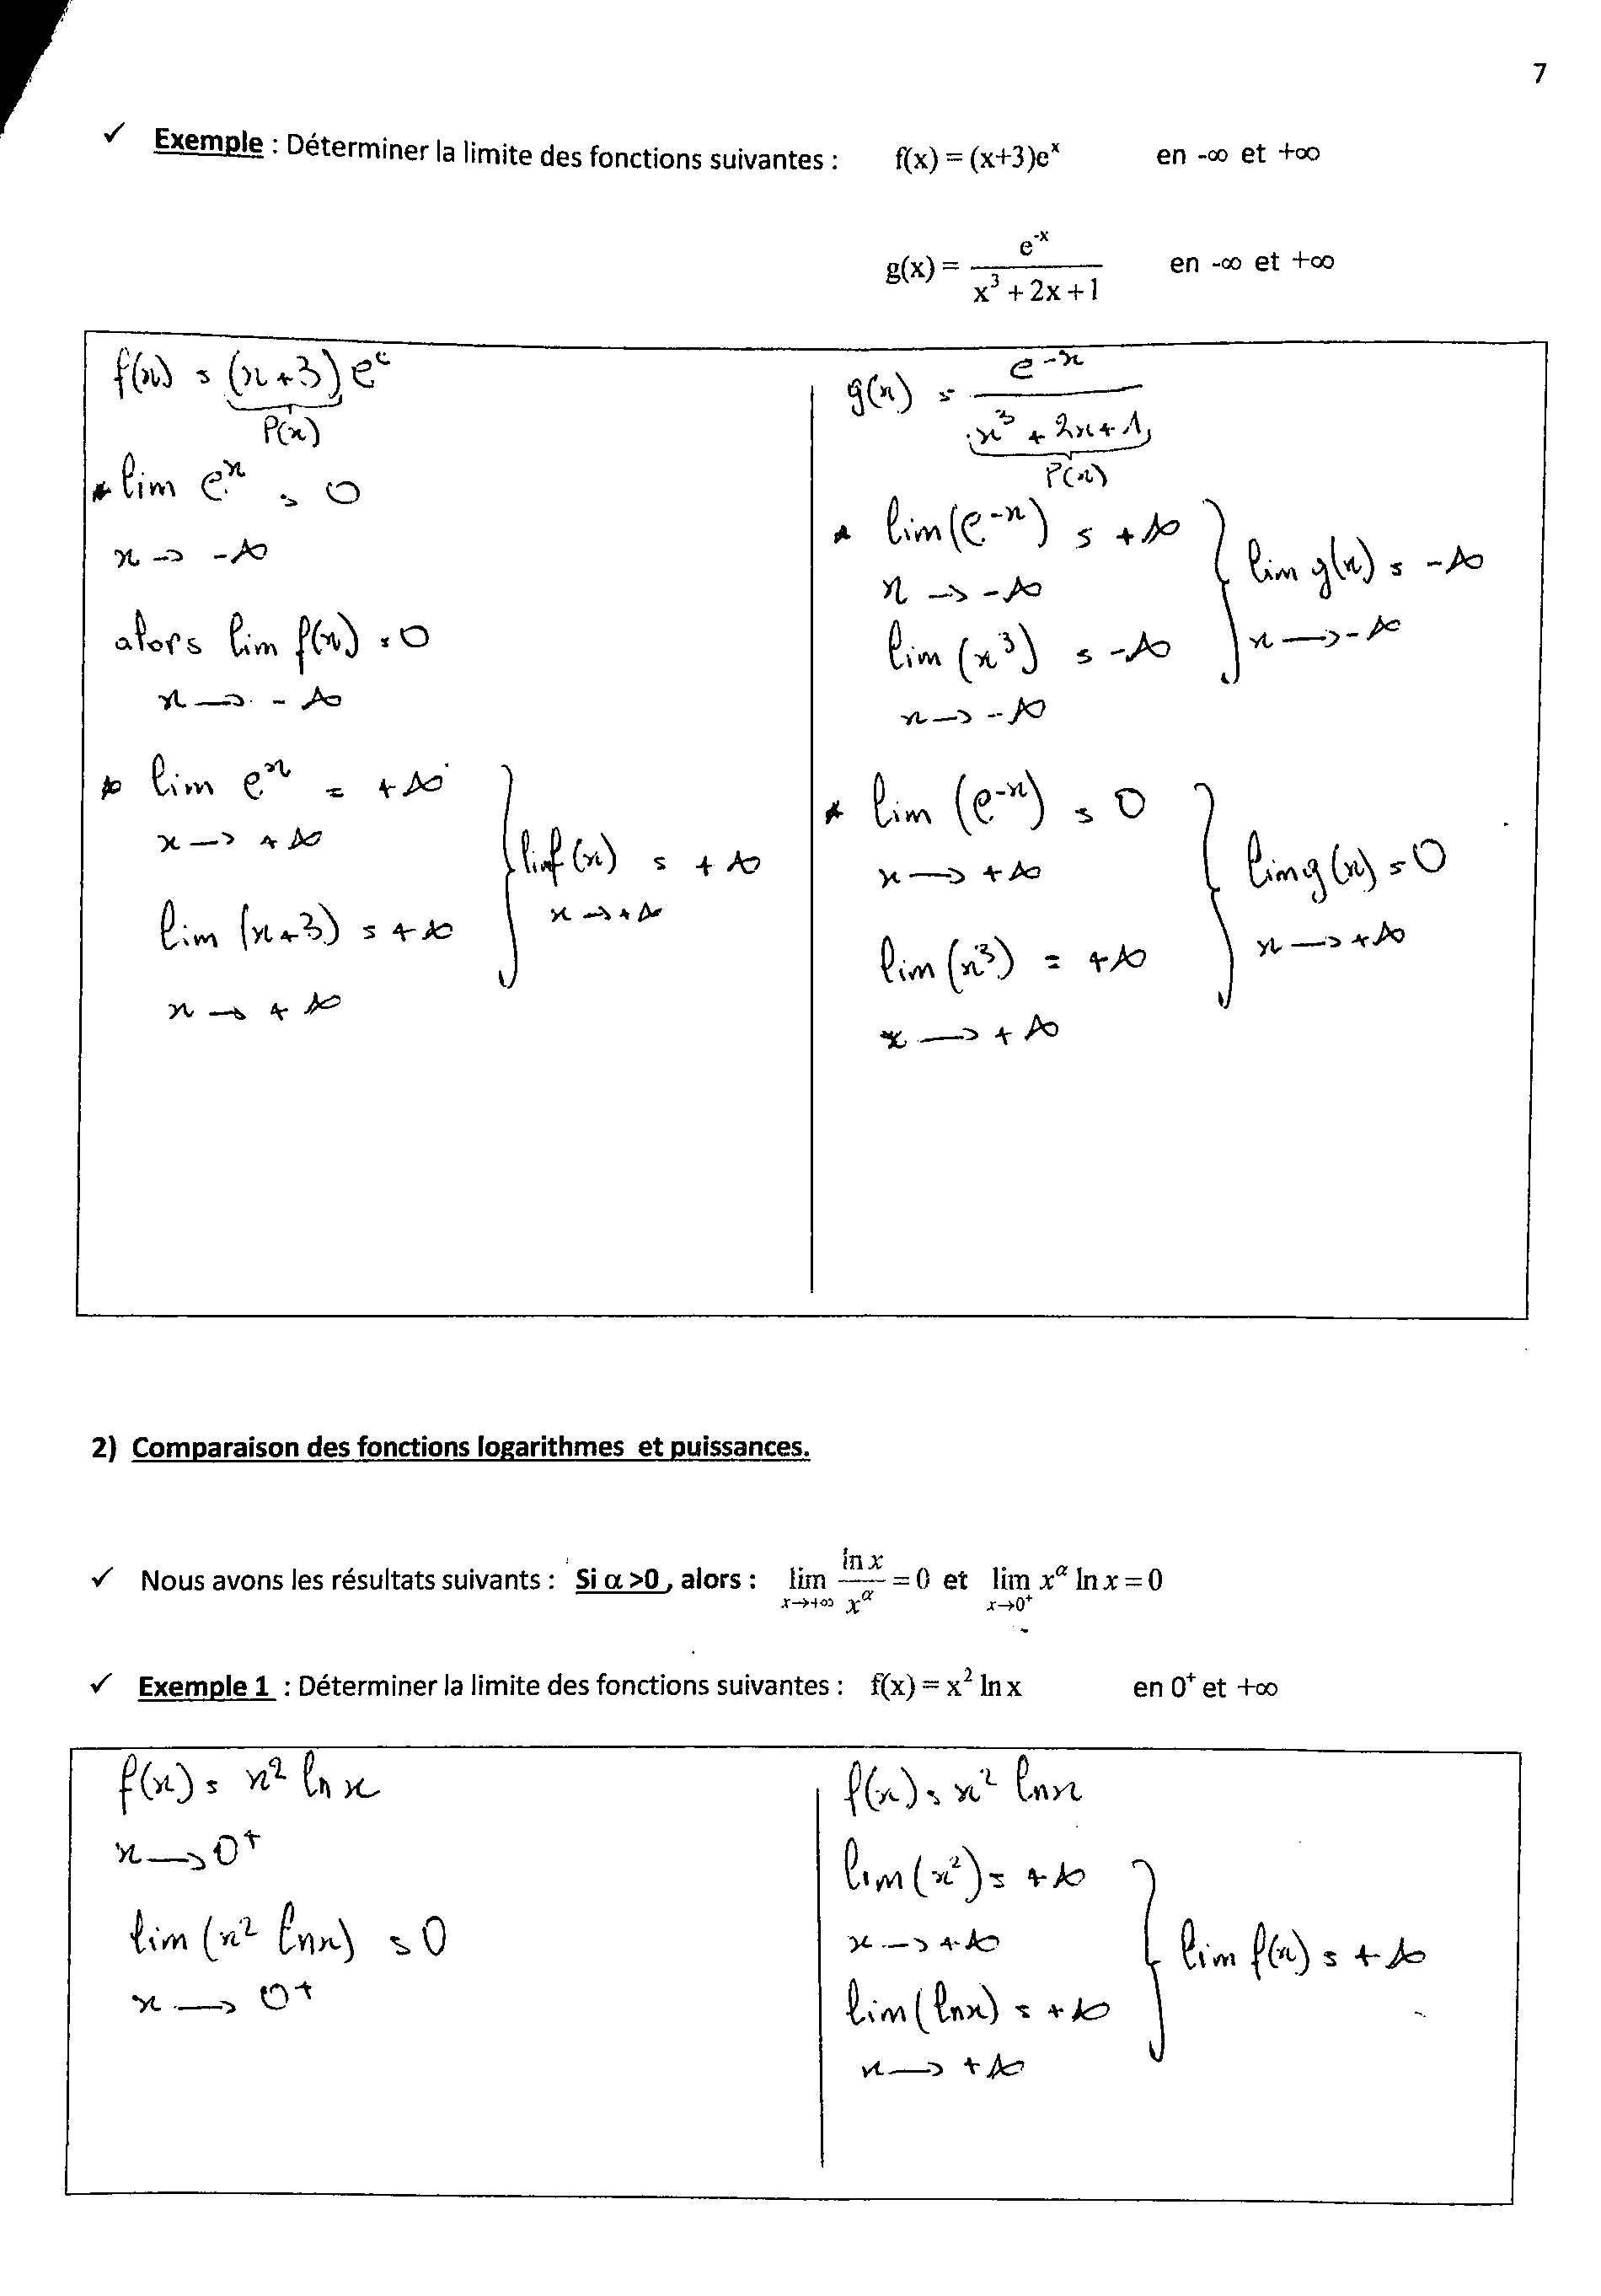 7
✓ Exemple : Déterminer la limite des fonctions suivantes : f(x) = (x+3)e^x en -∞ et +∞
g(x) = e^-x / (x^3 + 2x + 1) en -∞ et +∞
f(x) = (x+3) e^x
P(x)
* lim e^x = 0
x → -∞
alors lim f(x) = 0
x → -∞
* lim e^x = +∞
x → +∞
lim (x+3) = +∞
x → +∞
lim f(x) = +∞
x → +∞
g(x) = e^-x / (x^3 + 2x + 1)
P(x)
* lim (e^-x) = +∞
x → -∞
lim (x^3) = -∞
x → -∞
lim g(x) = -∞
x → -∞
* lim (e^-x) = 0
x → +∞
lim (x^3) = +∞
x → +∞
lim g(x) = 0
x → +∞
2) Comparaison des fonctions logarithmes et puissances.
✓ Nous avons les résultats suivants : Si α >0 , alors : lim x→+∞ ln x / x^α = 0 et lim x→0⁺ x^α ln x = 0
✓ Exemple 1 : Déterminer la limite des fonctions suivantes : f(x) = x² ln x en 0⁺ et +∞
f(x) = x² ln x
x → 0⁺
lim (x² ln x) = 0
x → 0⁺
f(x) = x² ln x
lim (x²) = +∞
x → +∞
lim (ln x) = +∞
x → +∞
lim f(x) = +∞